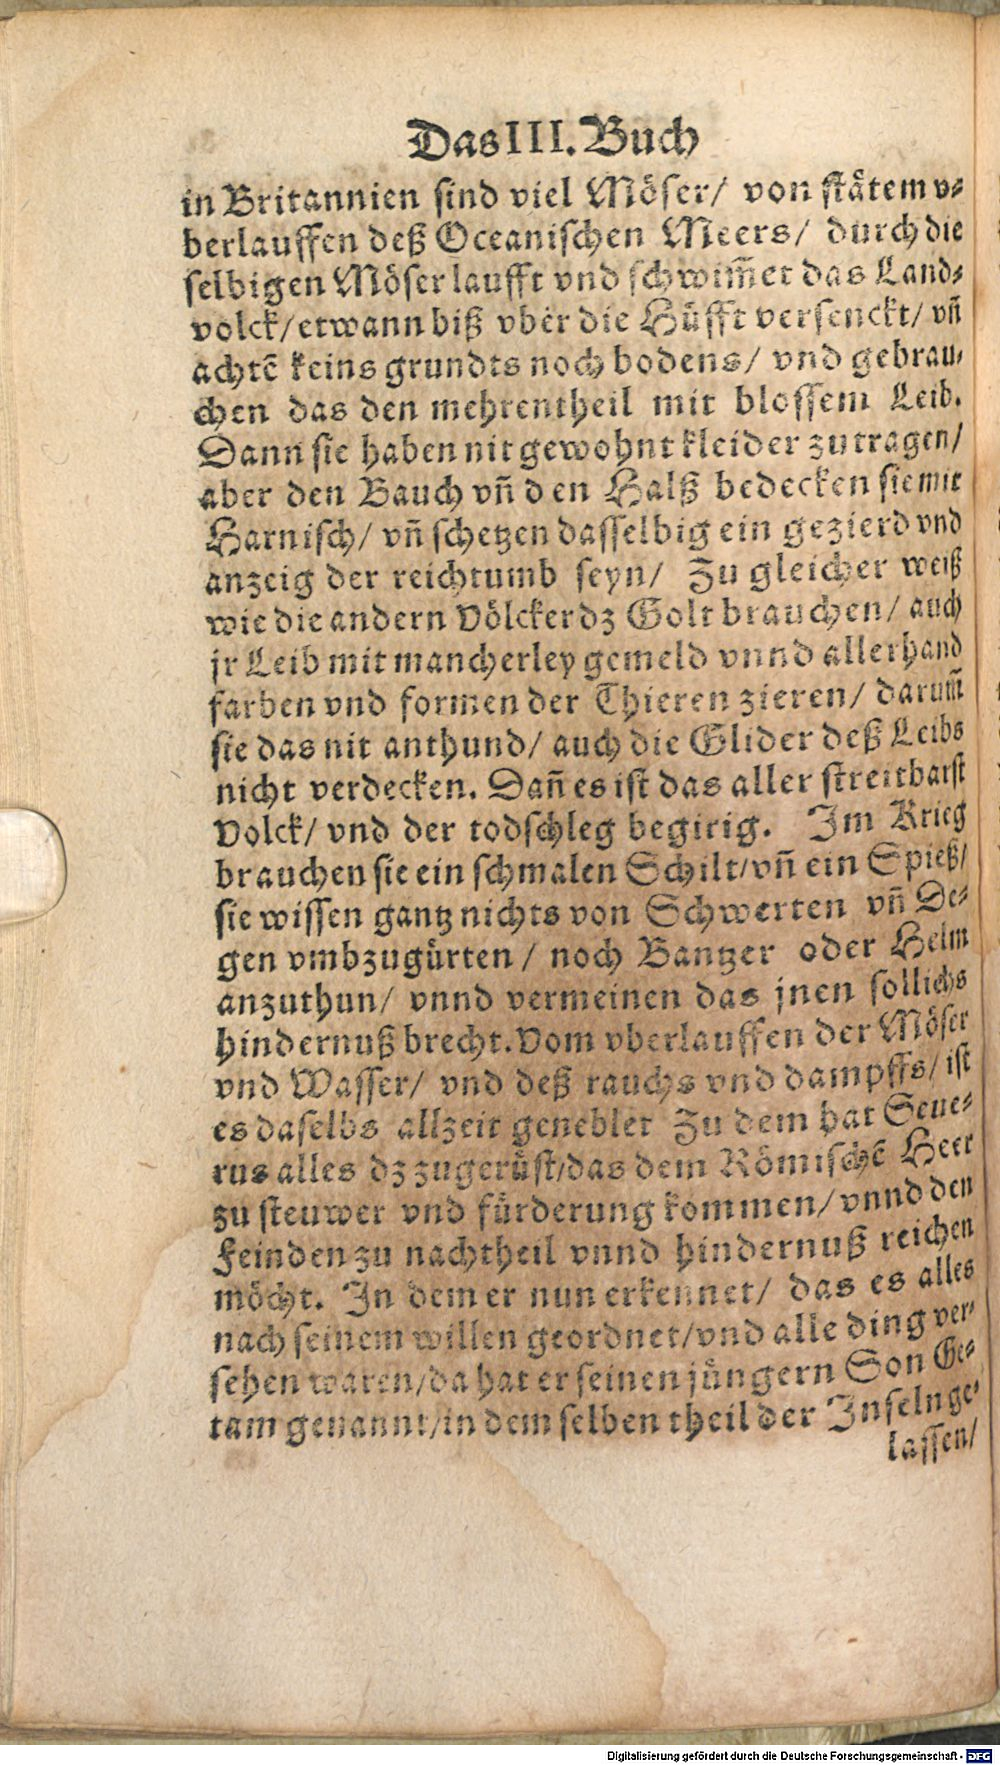 Das III. Buch
in Britannien sind viel Möser/ von stätem v⸗
berlauffen deß Oceanischen Meers/ durch die
selbigen Möser laufft vnd schwim̃et das Land⸗
volck/ etwann biß vber die Hüfft versenckt/ vñ
achtẽ keins grundts noch bodens/ vnd gebrau⸗
chen das den mehrentheil mit blossem Leib.
Dann sie haben nit gewohnt kleider zu tragen/
aber den Bauch vñ den Halß bedecken sie mit
Harnisch/ vñ schetzen dasselbig ein gezierd vnd
anzeig der reichtumb seyn/ Zu gleicher weiß
wie die andern Völcker dz Golt brauchen/ auch
jr Leib mit mancherley gemeld vnnd allerhand
farben vnd formen der Thieren zieren/ darum̃
sie das nit anthund/ auch die Glider deß Leibs
nicht verdecken. Dañ es ist das aller streitbarst
Volck/ vnd der todschleg begirig. Im Krieg
brauchen sie ein schmalen Schilt/ vñ ein Spieß/
sie wissen gantz nichts von Schwerten vñ De⸗
gen vmbzugürten/ noch Bantzer oder Helm
anzuthun/ vnnd vermeinen das jnen sollichs
hindernuß brecht. Vom vberlauffen der Möser
vnd Wasser/ vnd deß rauchs vnd dampffs/ ist
es daselbs allzeit geneblet Zu dem hat Seue⸗
rus alles dz zugerüst/ das dem Römischẽ Heer
zu steuwer vnd fürderung kommen/ vnnd den
Feinden zu nachtheil vnnd hindernuß reichen
möcht. In dem er nun erkennet/ das es alles
nach seinem willen geordnet/ vnd alle ding ver⸗
sehen waren/ da hat er seinen jüngern Son Ge⸗
tam genannt/ in dem selben theil der Inseln ge⸗
lassen/
Digitalisierung gefördert durch die Deutsche Forschungsgemeinschaft - DFG